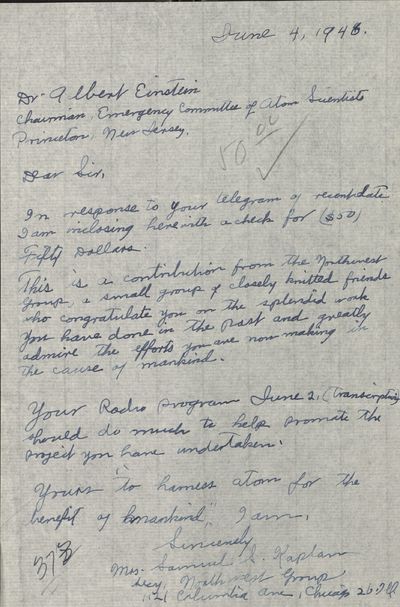 June 4, 1946.
Dr Albert Einstein
Chairman, Emergency Committee of Atom Scientists
Princeton, New Jersey.
50 00
Dear Sir,
In response to your telegram of recent date
I am inclosing herewith a check for ($50)
Fifty Dollars.
This is a contribution from the Northwest
Group, a small group of closely knitted friends
who congratulate you on the splendid work
you have done in the past and greatly
admire the efforts you are now making in
the cause of mankind.
Your Radio program June 2, (transcription)
should do much to help promote the
project you have undertaken.
Yours "to harness atom for the
benefit of mankind," I am,
Sincerely
Mrs. Samuel S. Kaplan
Secy, Northwest Group
Columbia Ave, Chicago 26 Ill